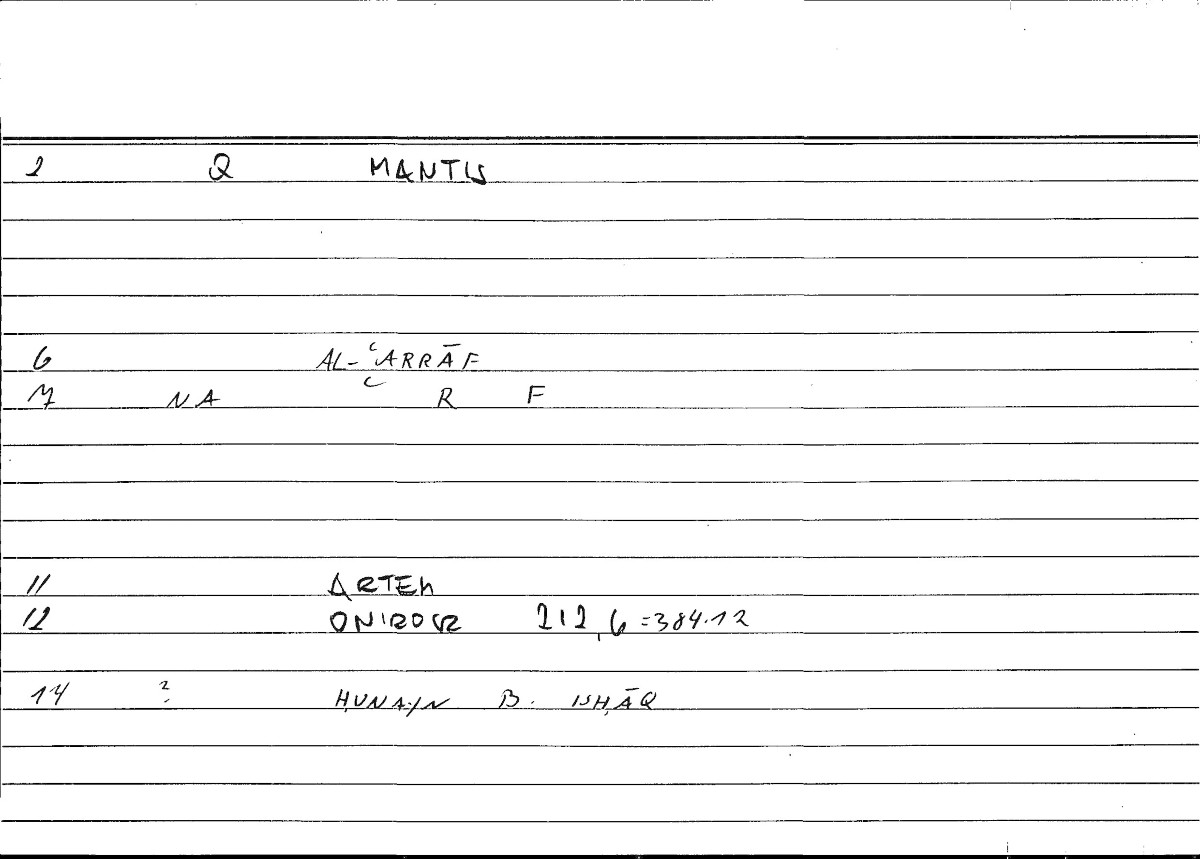 2 Q MANTIS
6 AL-ʿARRĀF
7 NA ʿ R F
11 ARTEM
12 ONIROCR 212,6=384.12
14 2 ḤUNAYN B. ISḤĀQ